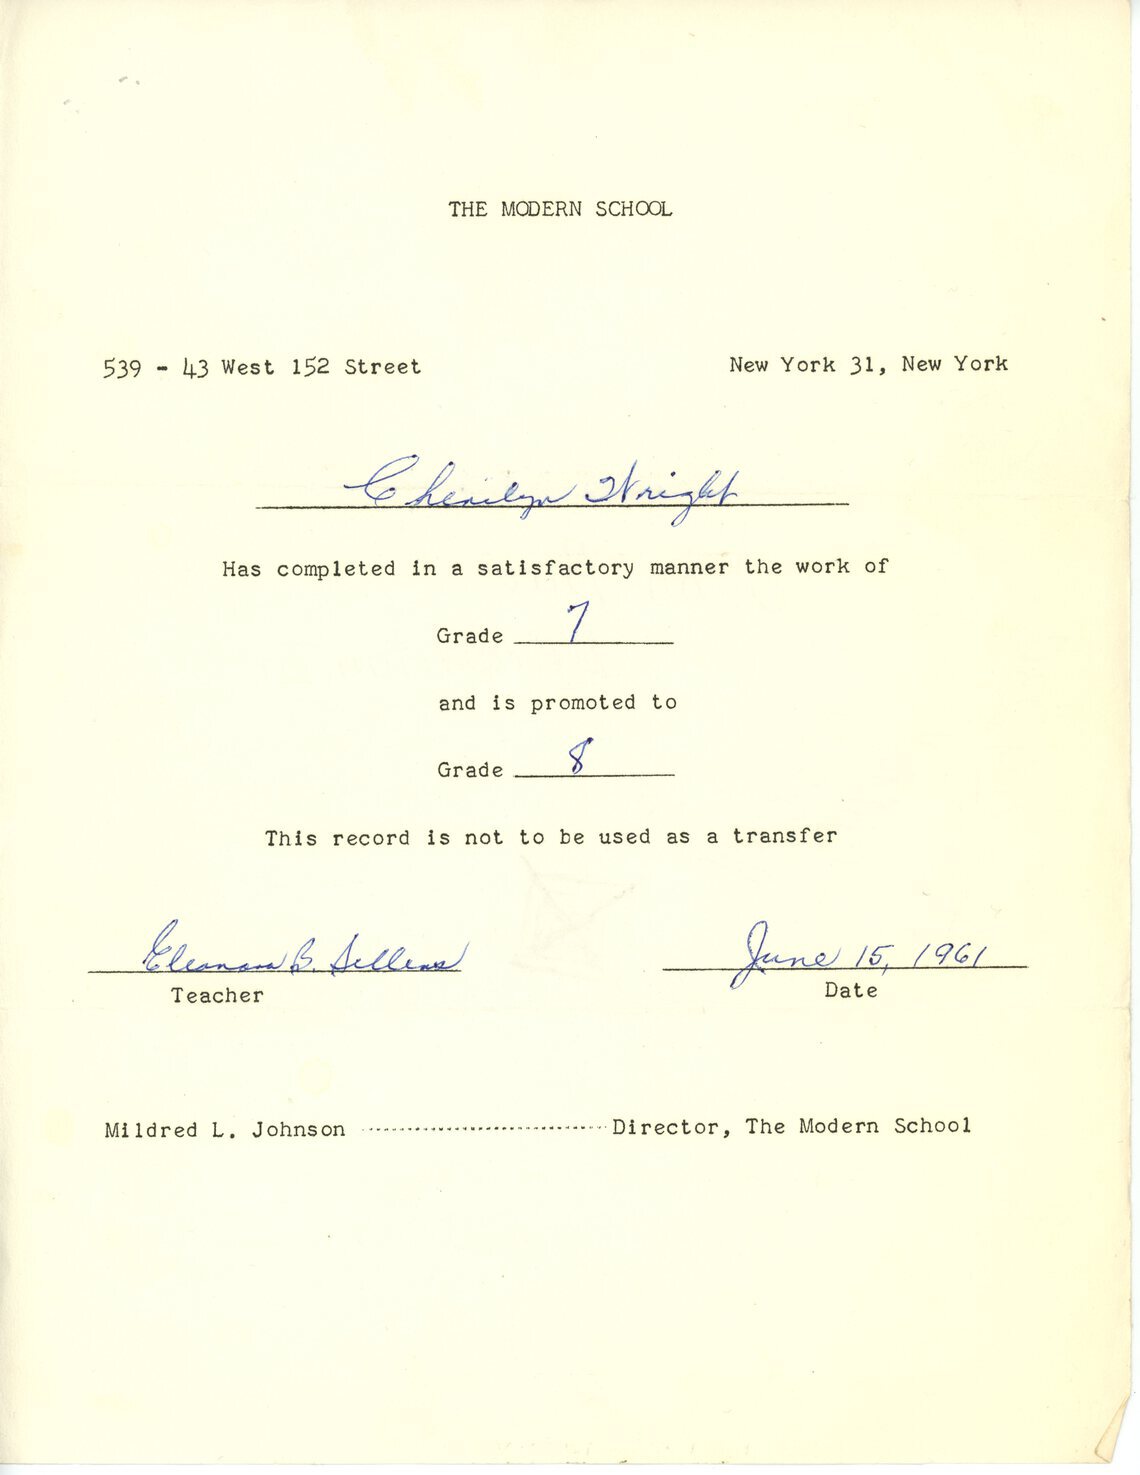 THE MODERN SCHOOL
539 - 43 West 152 Street New York 31, New York
Cherilyn Wright
Has completed in a satisfactory manner the work of
Grade 7
and is promoted to
Grade 8
This record is not to be used as a transfer
Eleanora B. Sellens June 15, 1961
Teacher Date
Mildred L. Johnson ------------------------ Director, The Modern School